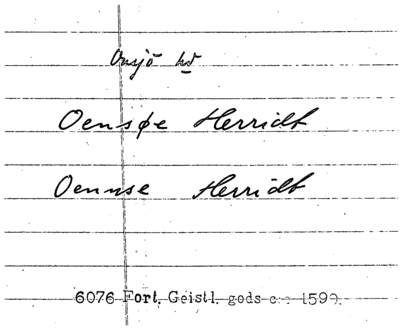 Onsjö hd
Oensøe Herridt
Oennse Herridt
6076 Fort. Geistl. gods c: 1599.